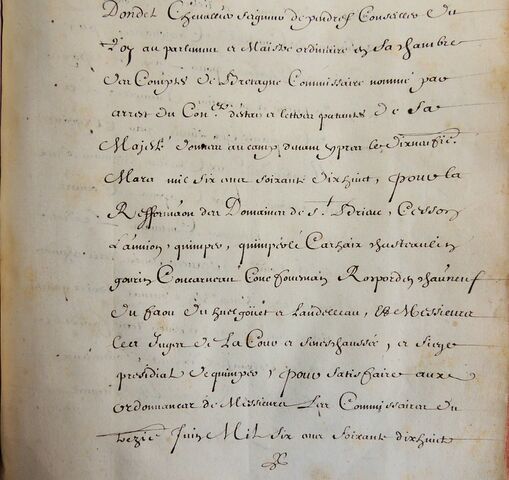 Dondel Chevallier seigneur de pendref Conseiller du
Roy au parlement et Maistre ordinaire en sa chambre
des Comptes de Bretagne Commissaire nommé par
arrest du Con.el d'estat et lettres patantes de Sa
Majesté données au camp devant ypres le dixneufie.
Mars mil six cens soixante dixhuict, pour la
Refformaon des Domaines de St Briau, Cesson
Lannion, quimper, quimperlé Carhaix chasteaulin
gourin Concarneau Conc fouesnan Rosporden chauneuf
du faou du huelgoüet et Landeleau, & Messieurs
les Juges de La Cour et seneschaussée, et siege
présidial de quimper, pour satisfaire aux
ordonnances de Messieurs Les Commissaires du
treziè Juin Mil six cens soixante dixhuict